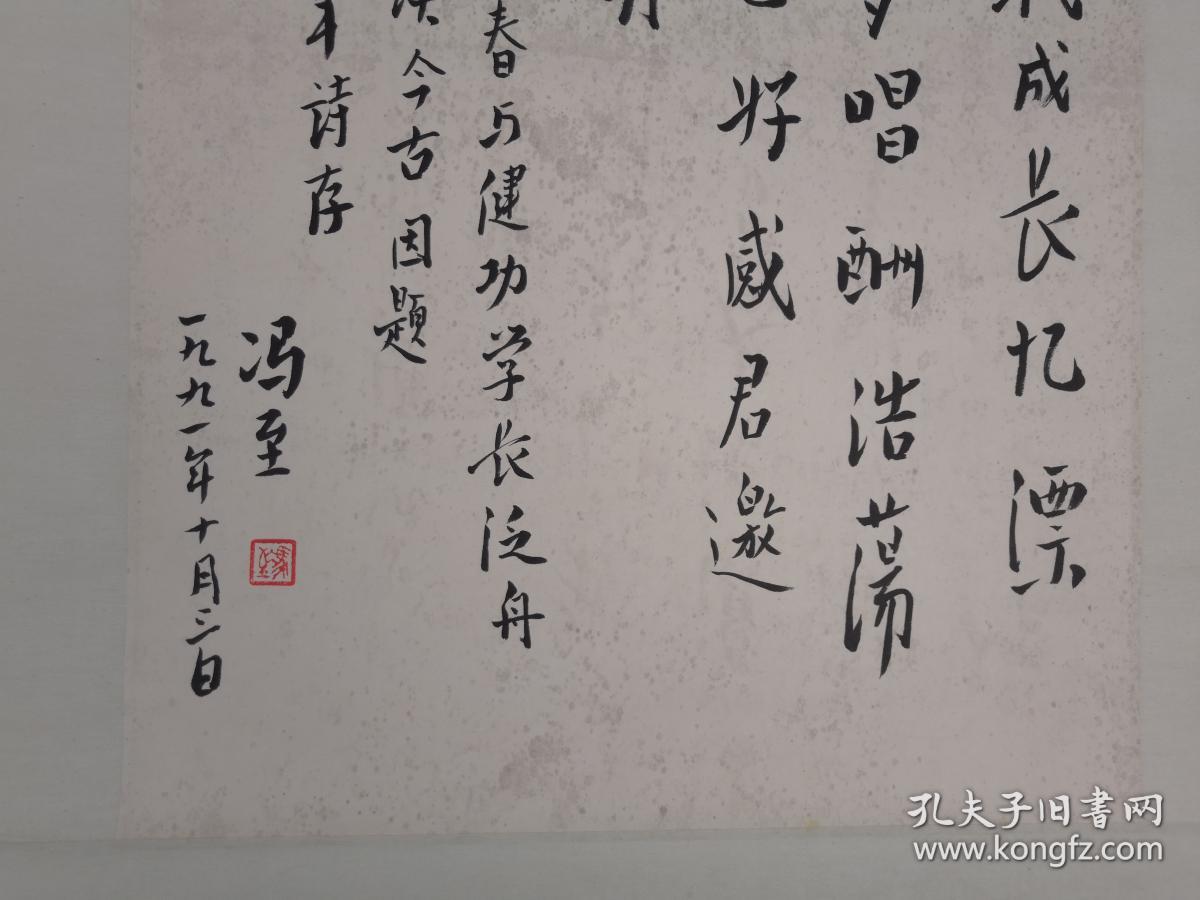 成长忆漂
唱酬浩荡
好感君邀
春与健功学长泛舟
今古因题
诗存
冯至
一九九一年十月三日
孔夫子旧書网
www.kongfz.com